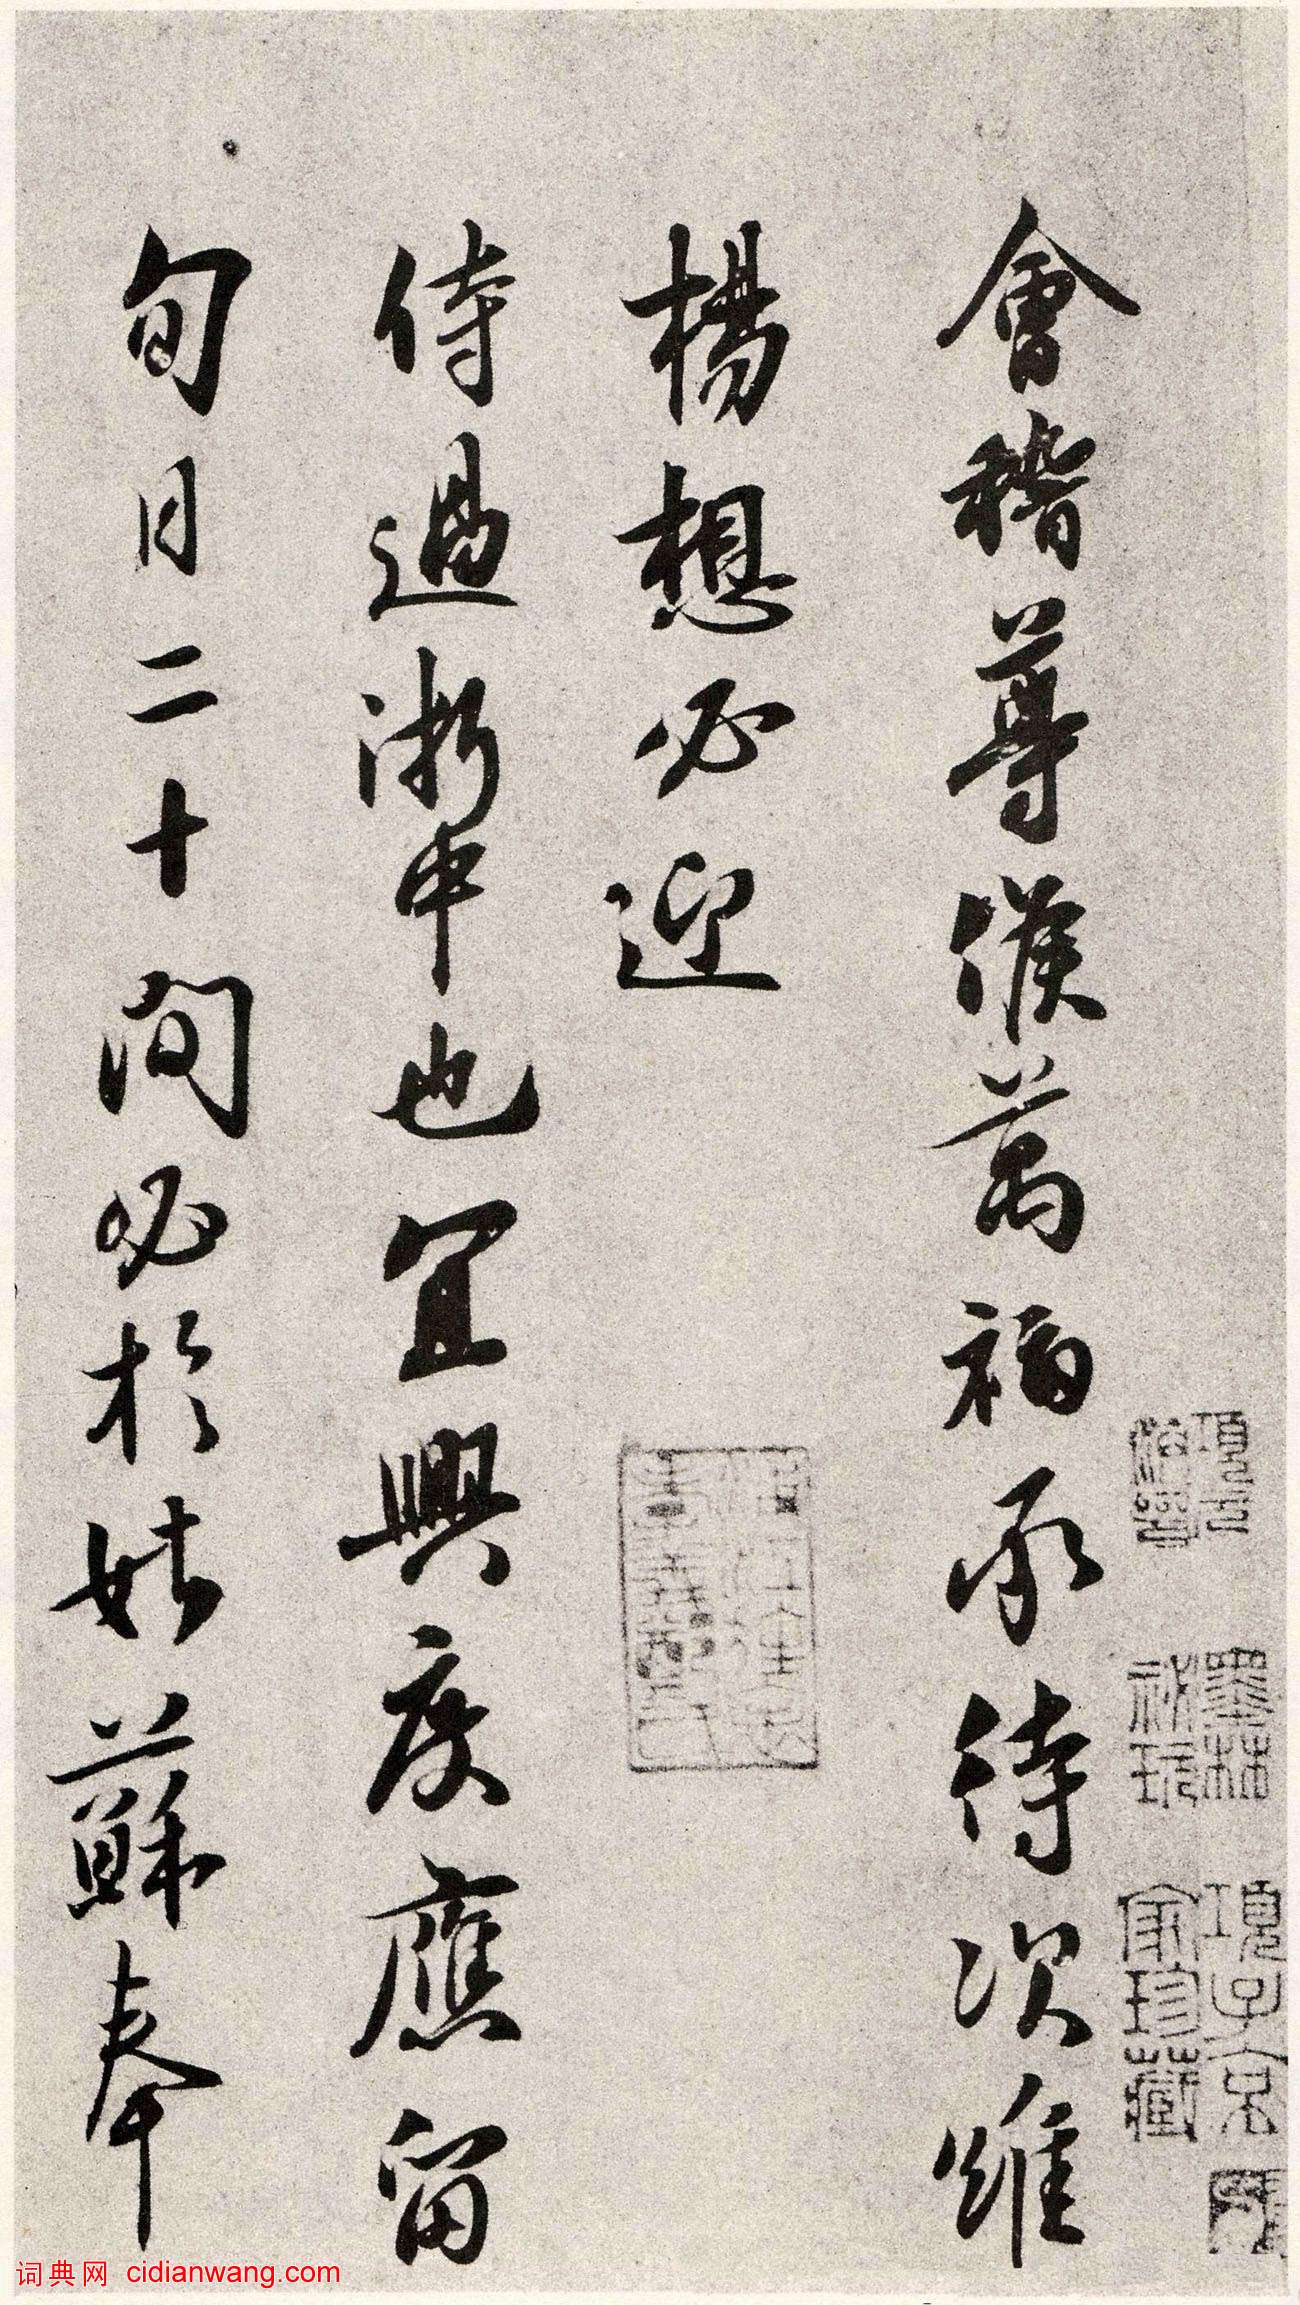 項元汴印
墨林祕玩
項子京家珍藏
會稽尊候萬福承待次維
楊想必迎
侍過浙中也宜興度應留
旬日二十間必於姑蘇奉
词典网 cidianwang.com